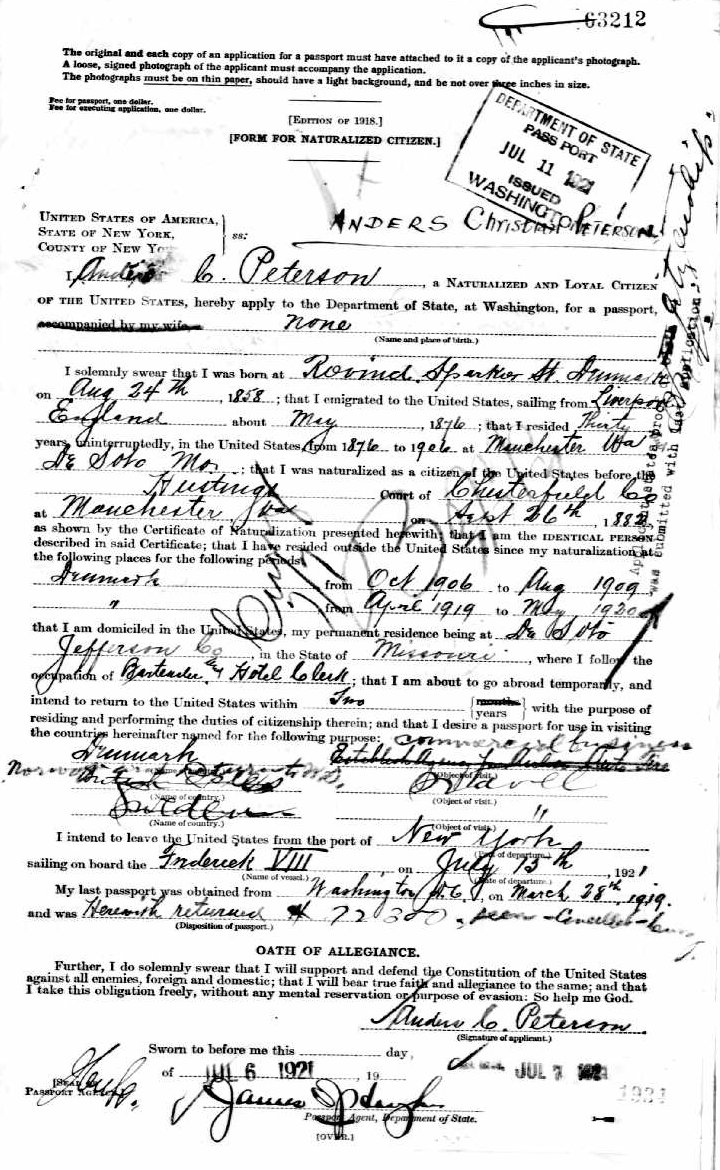 63212
The original and each copy of an application for a passport must have attached to it a copy of the applicant's photograph.
A loose, signed photograph of the applicant must accompany the application.
The photographs must be on thin paper, should have a light background, and be not over three inches in size.
Fee for passport, one dollar.
Fee for executing application, one dollar.
[EDITION OF 1918.]
[FORM FOR NATURALIZED CITIZEN.]
DEPARTMENT OF STATE
PASSPORT
JUL 11 1921
ISSUED
WASHINGTON
UNITED STATES OF AMERICA,
STATE OF NEW YORK,
COUNTY OF NEW YO
ss:
ANDERS Christian PETERSON
I, Anders C. Peterson, a NATURALIZED AND LOYAL CITIZEN
OF THE UNITED STATES, hereby apply to the Department of State, at Washington, for a passport,
accompanied by my wife, none
(Name and place of birth.)
I solemnly swear that I was born at Rovind Sparkier St. Denmark
on Aug 24th, 1858; that I emigrated to the United States, sailing from Liverpool
England about May 1876; that I resided Thirty
years, uninterruptedly, in the United States, from 1876 to 1906 at Manchester Va
De Soto Mo.; that I was naturalized as a citizen of the United States before the
Hustings Court of Chesterfield Co
at Manchester Va on 26th, 1882,
as shown by the Certificate of Naturalization presented herewith; that I am the IDENTICAL PERSON
described in said Certificate; that I have resided outside the United States since my naturalization at
the following places for the following periods:
Denmark, from Oct 1906 to Aug 1909
", from April 1919 to May 1920
that I am domiciled in the United States, my permanent residence being at De Soto
Jefferson Co, in the State of Missouri, where I follow the
occupation of Bartender & Hotel Clerk; that I am about to go abroad temporarily, and
intend to return to the United States within Two {months years} with the purpose of
residing and performing the duties of citizenship therein; and that I desire a passport for use in visiting
the countries hereinafter named for the following purpose: commercial business
Denmark Establish Agency for
(Name of country.) (Object of visit.)
British Isles Travel
(Name of country.) (Object of visit.)
Sweden "
(Name of country.) (Object of visit.)
I intend to leave the United States from the port of New York
(Port of departure.)
sailing on board the Frederick VIII, on July 15th, 1921
(Name of vessel.) (Date of departure.)
My last passport was obtained from Washington D.C., on March 28th, 1919.
and was Herewith returned # 72380, seen
(Disposition of passport.)
OATH OF ALLEGIANCE.
Further, I do solemnly swear that I will support and defend the Constitution of the United States
against all enemies, foreign and domestic; that I will bear true faith and allegiance to the same; and that
I take this obligation freely, without any mental reservation or purpose of evasion: So help me God.
Anders C. Peterson
(Signature of applicant.)
Sworn to before me this day,
of JUL 6 1921, 19
JUL 7 1921
[SEAL OF
PASSPORT AGENCY.]
James
Passport Agent, Department of State.
[OVER.]
1921